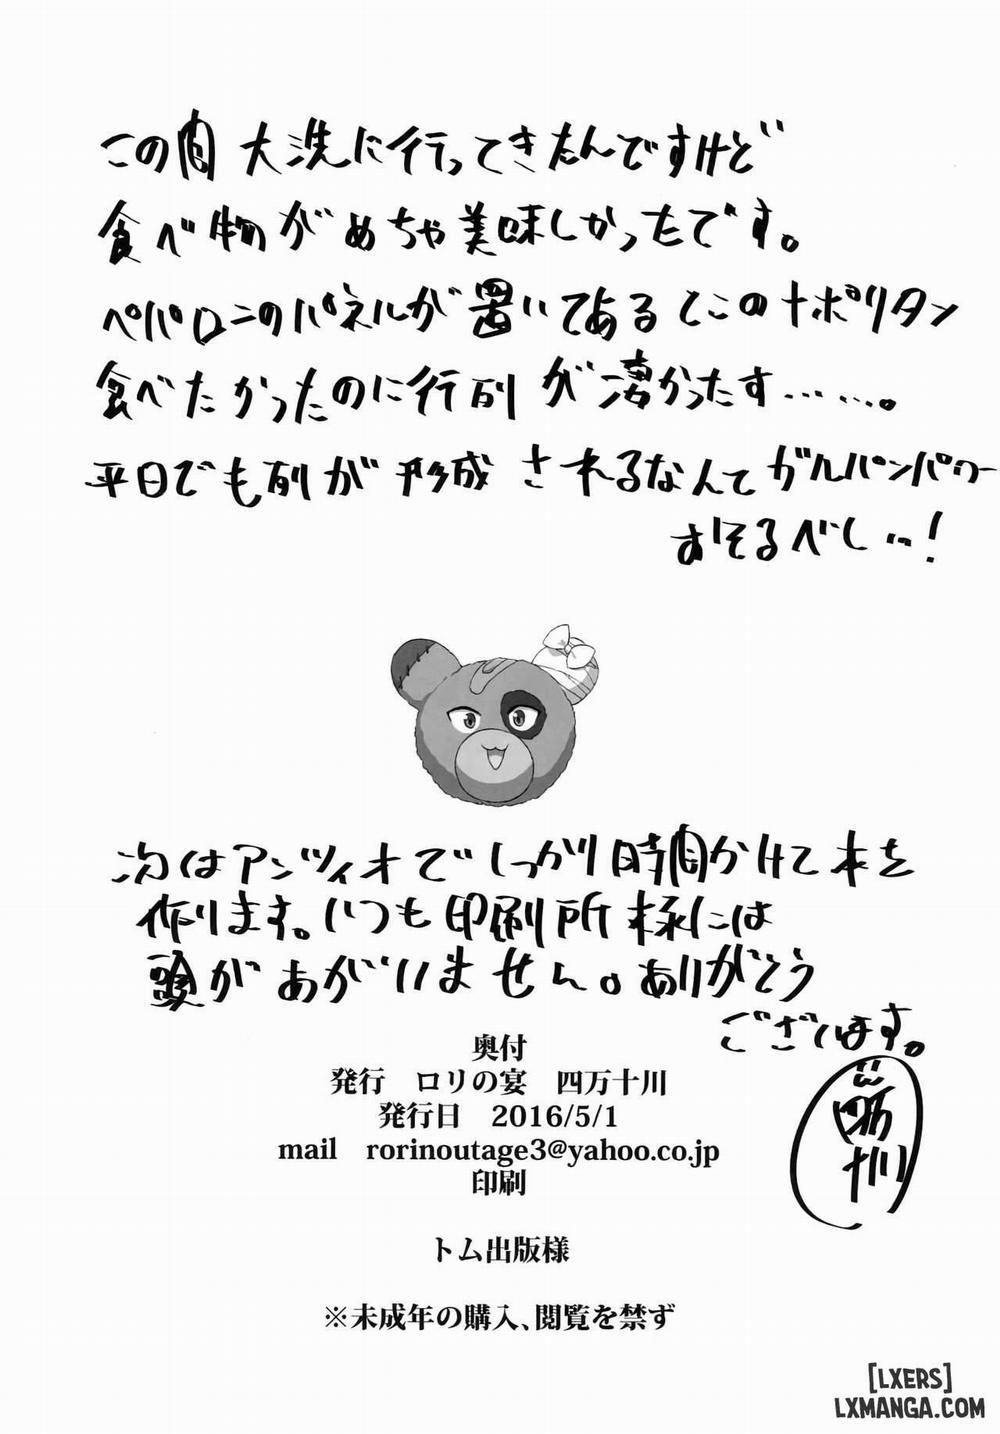 この間 大洗に行ってきたんですけど
食べ物がめちゃ美味しかったです。
ペパロニのパネルが置いてあるとこのナポリタン
食べたかったのに行列が凄かったす……。
平日でも列が形成されるなんてガルパンパワー
おそるべしぃ!
次はアンツィオでしっかり時間かけて本を
作ります。いつも印刷所様には
頭があがいません。ありがとう
ございます。
四万十川
奥付
発行 ロリの宴 四万十川
発行日 2016/5/1
mail rorinoutage3@yahoo.co.jp
印刷
トム出版様
※未成年の購入、閲覧を禁ず
[LXERS]
LXMANGA.COM